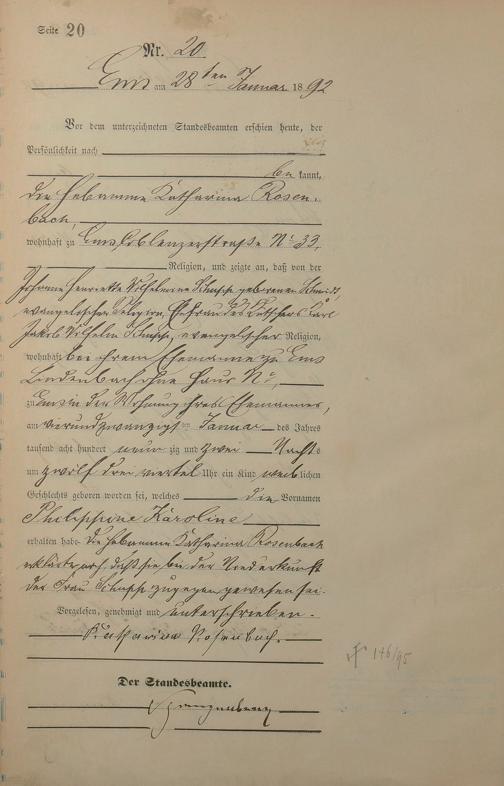 Seite 20
Nr. 20
Ems am 28ten Januar 1892
Vor dem unterzeichneten Standesbeamten erschien heute, der
Persönlichkeit nach
be kannt,
die Hebamme Katharina Rosen-
bach,
wohnhaft zu Ems Coblenzerstraße No 33,
Religion, und zeigte an, daß von der
Johanna Henriette Wilhelmine geborenen Schmidt,
evangelischer Religion, Ehefrau des Kutschers Carl
Jakob Wilhelm evangelischer Religion,
wohnhaft bei ihrem Ehemanne zu Ems
Lindenbach ohne Haus No,
zu Ems in der Wohnung ihres Ehemannes,
am vierundzwanzigsten Januar des Jahres
tausend acht hundert neun zig und zwei Nachts
um zwölf drei viertel Uhr ein Kind weib lichen
Geschlechts geboren worden sei, welches die Vornamen
Philippine Karoline
erhalten habe. Die Hebamme Katharina Rosenbach
erklärte noch, daß sie bei der Niederkunft
der Frau zugegen gewesen sei.
Vorgelesen, genehmigt und unterschrieben.
Katharina Rosenbach.
Der Standesbeamte.
146/95